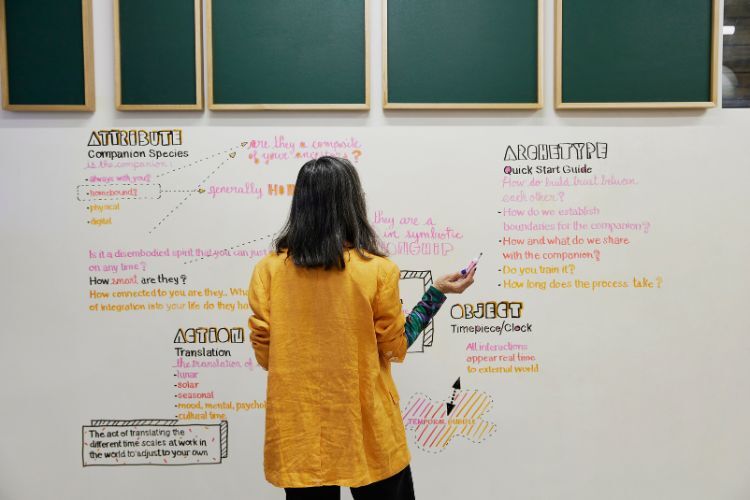 ATTRIBUTE
Companion Species
is the companion:
- always with you?
- homebound?
- physical
- digital
are they a composite
of your "ancestors"?
generally HO
they are a
in symbiotic
Is it a disembodied spirit that you can
on any time?
How smart are they?
How connected to you are they.. Wha
of integration into your life do they ha
ACTION
Translation
the translation of
- lunar
- solar
- seasonal
- mood, mental, psycho
- cultural time
The act of translating the
different time scales at work in
the world to adjust to your own
ARCHETYPE
Quick Start Guide
How do build trust between
each other?
- How do we establish
boundaries for the companion?
- How and what do we share
with the companion?
- Do you train it?
- How long does the process take?
OBJECT
Timepiece/Clock
All interactions
appear real time
to external world
TEMPORAL BUBBLE